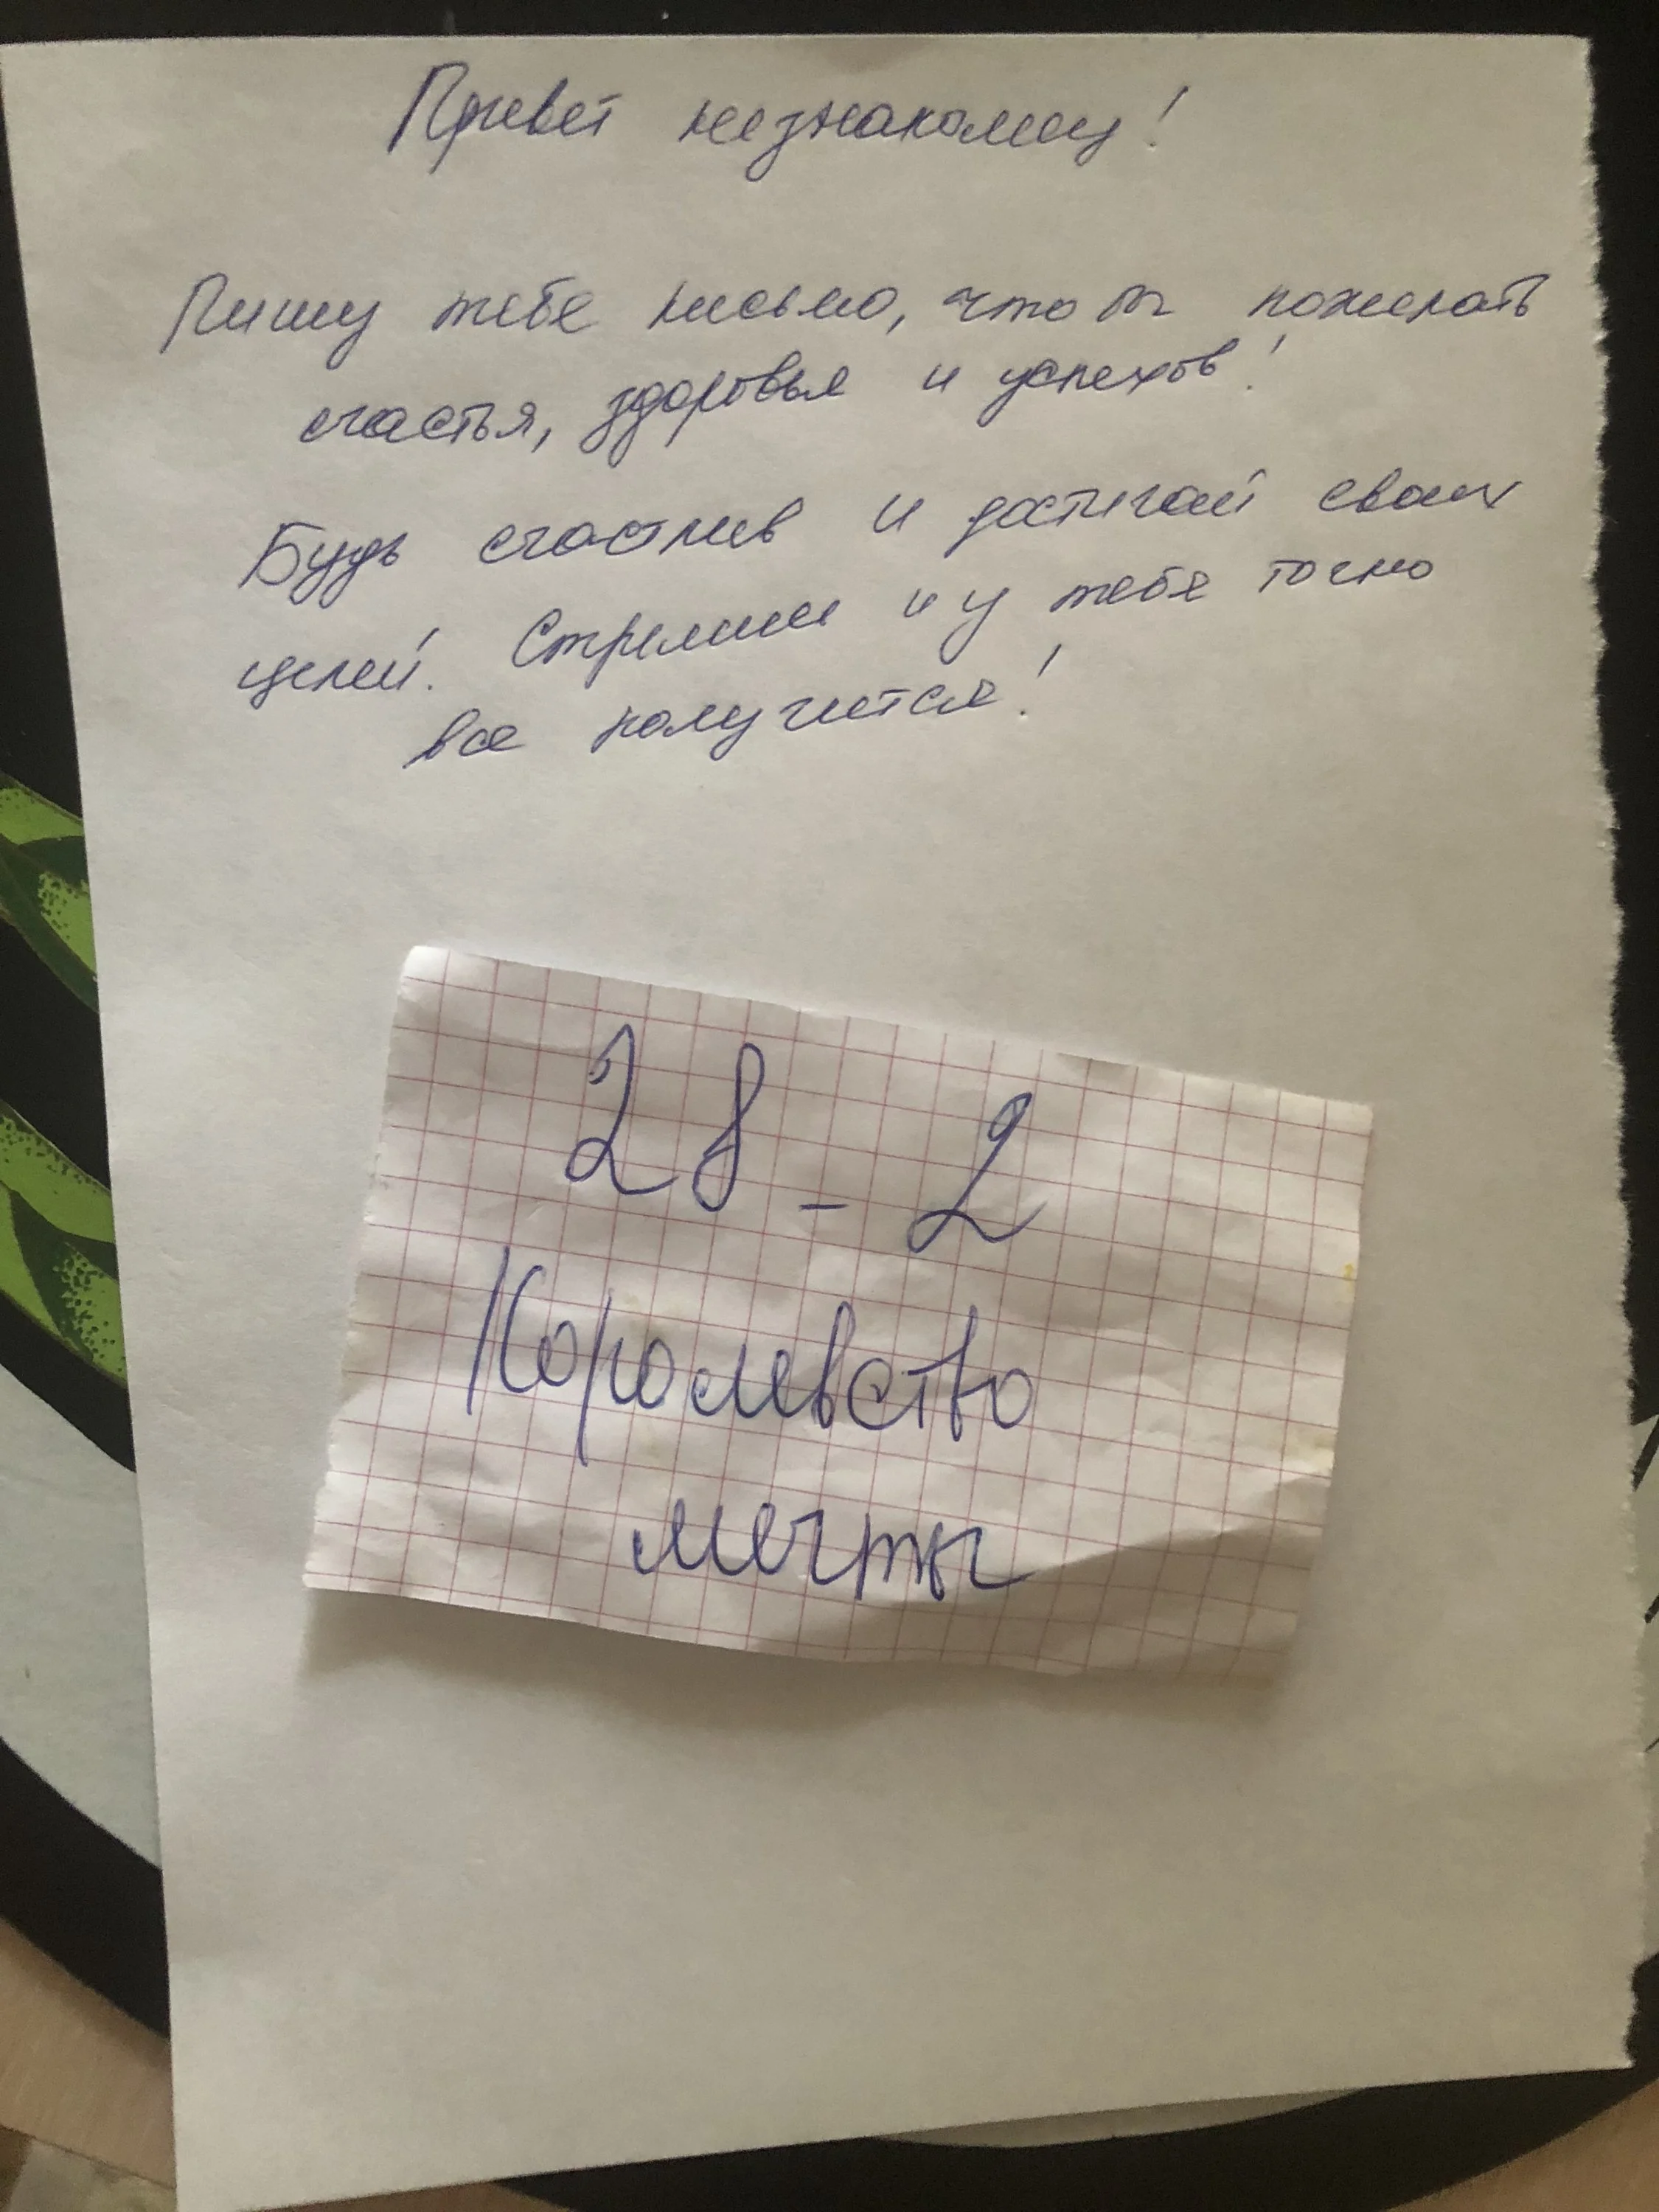 Привет незнакомец!
Пишу тебе письмо, что бы пожелать
счастья, здоровья и успехов!
Будь счастлив и достигай своих
целей. Стремись и у тебя точно
все получится!
28-2
Королевство
мечты